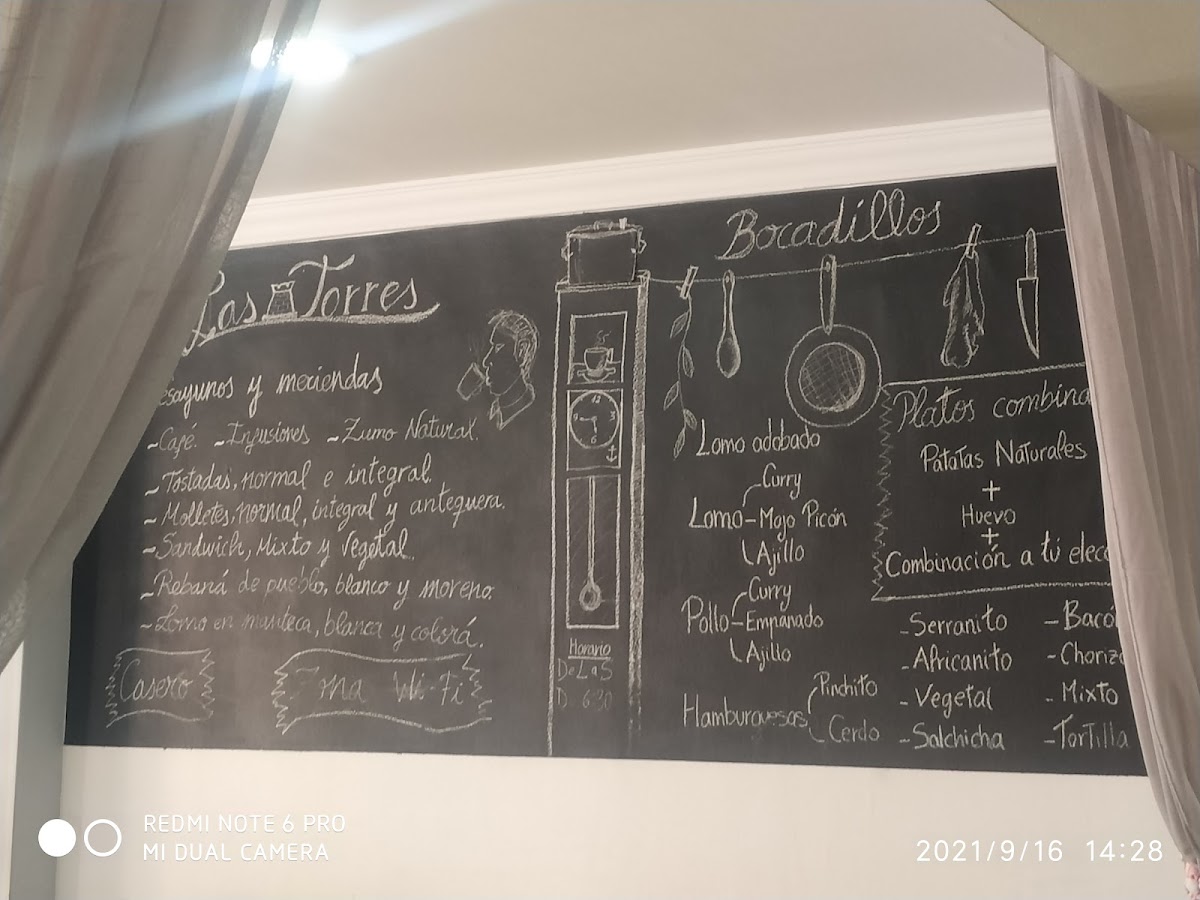 Las Torres
esayunos y meriendas
~Café. ~Infusiones ~Zumo Natural.
~Tostadas, normal e integral.
~Molletes, normal, integral y antequera.
~Sandwich, Mixto y Vegetal.
~Rebaná de pueblo, blanco y moreno.
~Lomo en manteca, blanca y colorá.
Casero
Wi-Fi
12
3
6
9
Horario
De L a S
D. 6:30
Bocadillos
Lomo adobado
Curry
Lomo-Mojo Picón
Ajillo
Curry
Pollo-Empanado
Ajillo
Pinchito
Hamburguesas
Cerdo
Platos combina
Patatas Naturales
+
Huevo
+
Combinación a tú elecc
-Serranito
-Africanito
-Vegetal
-Salchicha
-Bacó
-Choriz
-Mixto
-Tortilla
REDMI NOTE 6 PRO
MI DUAL CAMERA
2021/9/16 14:28